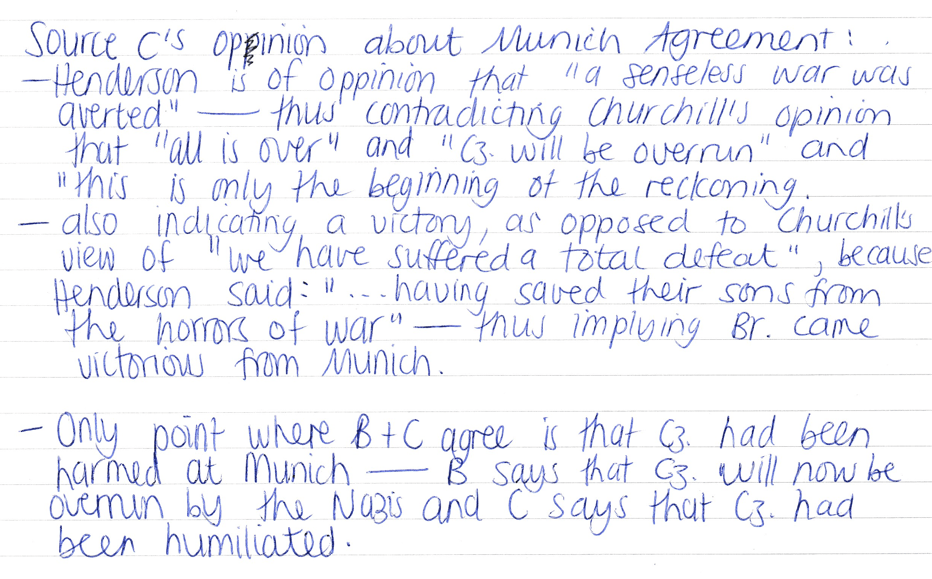 Source C's oppinion about Munich Agreement:.
– Henderson is of oppinion that "a senseless war was
averted" — thus contradicting Churchill's opinion
that "all is over" and "Cz. will be overrun" and
"this is only the beginning of the reckoning.
– also indicating a victory, as opposed to Churchills
view of "we have suffered a total defeat", because
Henderson said: "...having saved their sons from
the horrors of war" — thus implying Br. came
victorious from Munich.
– Only point where B+C agree is that Cz. had been
harmed at Munich — B says that Cz. will now be
overrun by the Nazis and C says that Cz. had
been humiliated.